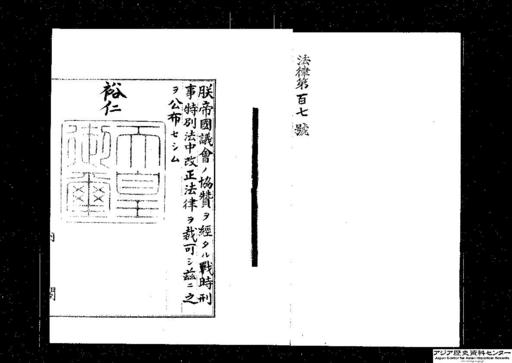 法律第百七號
朕帝國議會ノ協贊ヲ經タル戰時刑
事特別法中改正法律ヲ裁可シ茲ニ之
ヲ公布セシム
裕仁
天皇
御璽
内閣
アジア歴史資料センター
Japan Center for Asian Historical Records